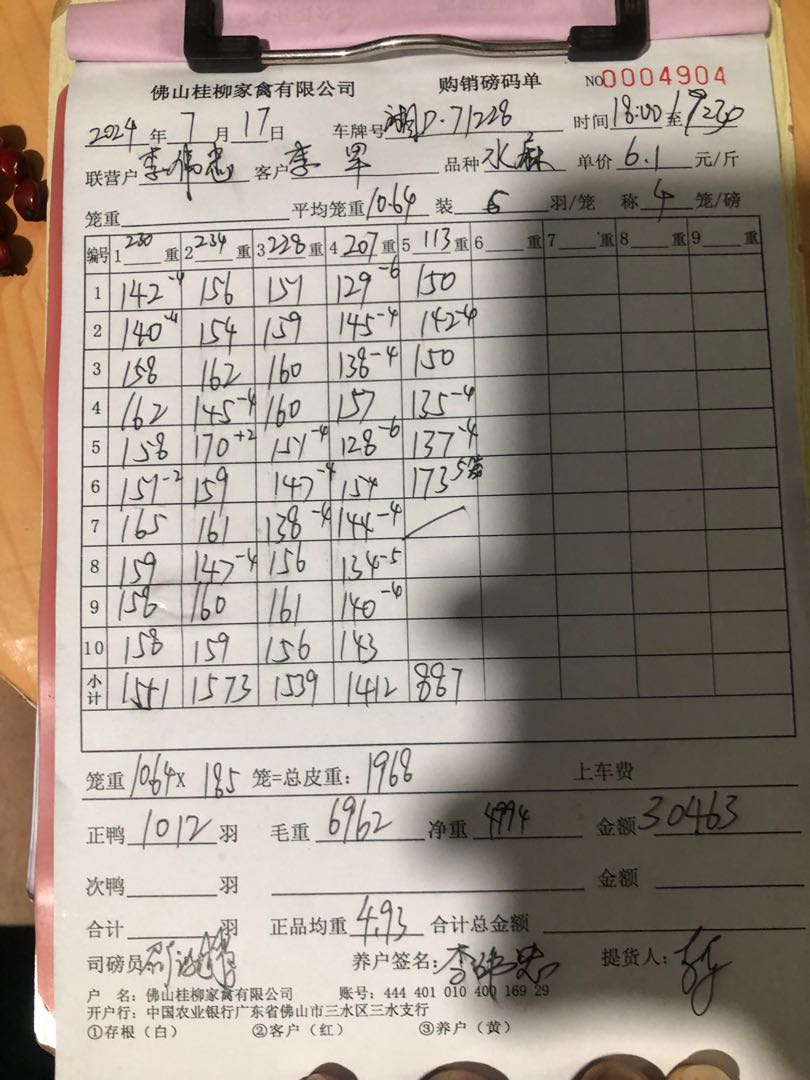 佛山桂柳家禽有限公司 购销磅码单 NO0004904
2024 年 7 月 17 日 车牌号 湘D·71228 时间 18:00 至 19:20
联营户 李伟忠 客户 李军 品种 水麻 单价 6.1 元/斤
笼重 平均笼重 10.64 装 羽/笼 称 4 笼/磅
编号 1 230 重 2 234 重 3 228 重 4 207 重 5 113 重 6 重 7 重 8 重 9 重
1 142-4 156 157 129-6 150
2 140-4 154 159 145-4 142-4
3 158 162 160 138-4 150
4 162 145-4 160 157 135-4
5 158 170+2 151-4 128-6 137-4
6 151-2 159 147-4 154 173
7 165 161 138-4 144-4
8 159 147-4 156 134-5
9 158 160 161 140
10 158 159 156 143
小计 1551 1573 1539 1412 887
笼重 10.64 X 185 笼=总皮重: 1968 上车费
正鸭 1012 羽 毛重 6962 净重 4994 金额 30463
次鸭 羽 金额
合计 羽 正品均重 4.93 合计总金额
司磅员 养户签名: 李伟忠 提货人:
户 名: 佛山桂柳家禽有限公司 账号: 444 401 010 400 169 29
开户行: 中国农业银行广东省佛山市三水区三水支行
①存根（白） ②客户（红） ③养户（黄）